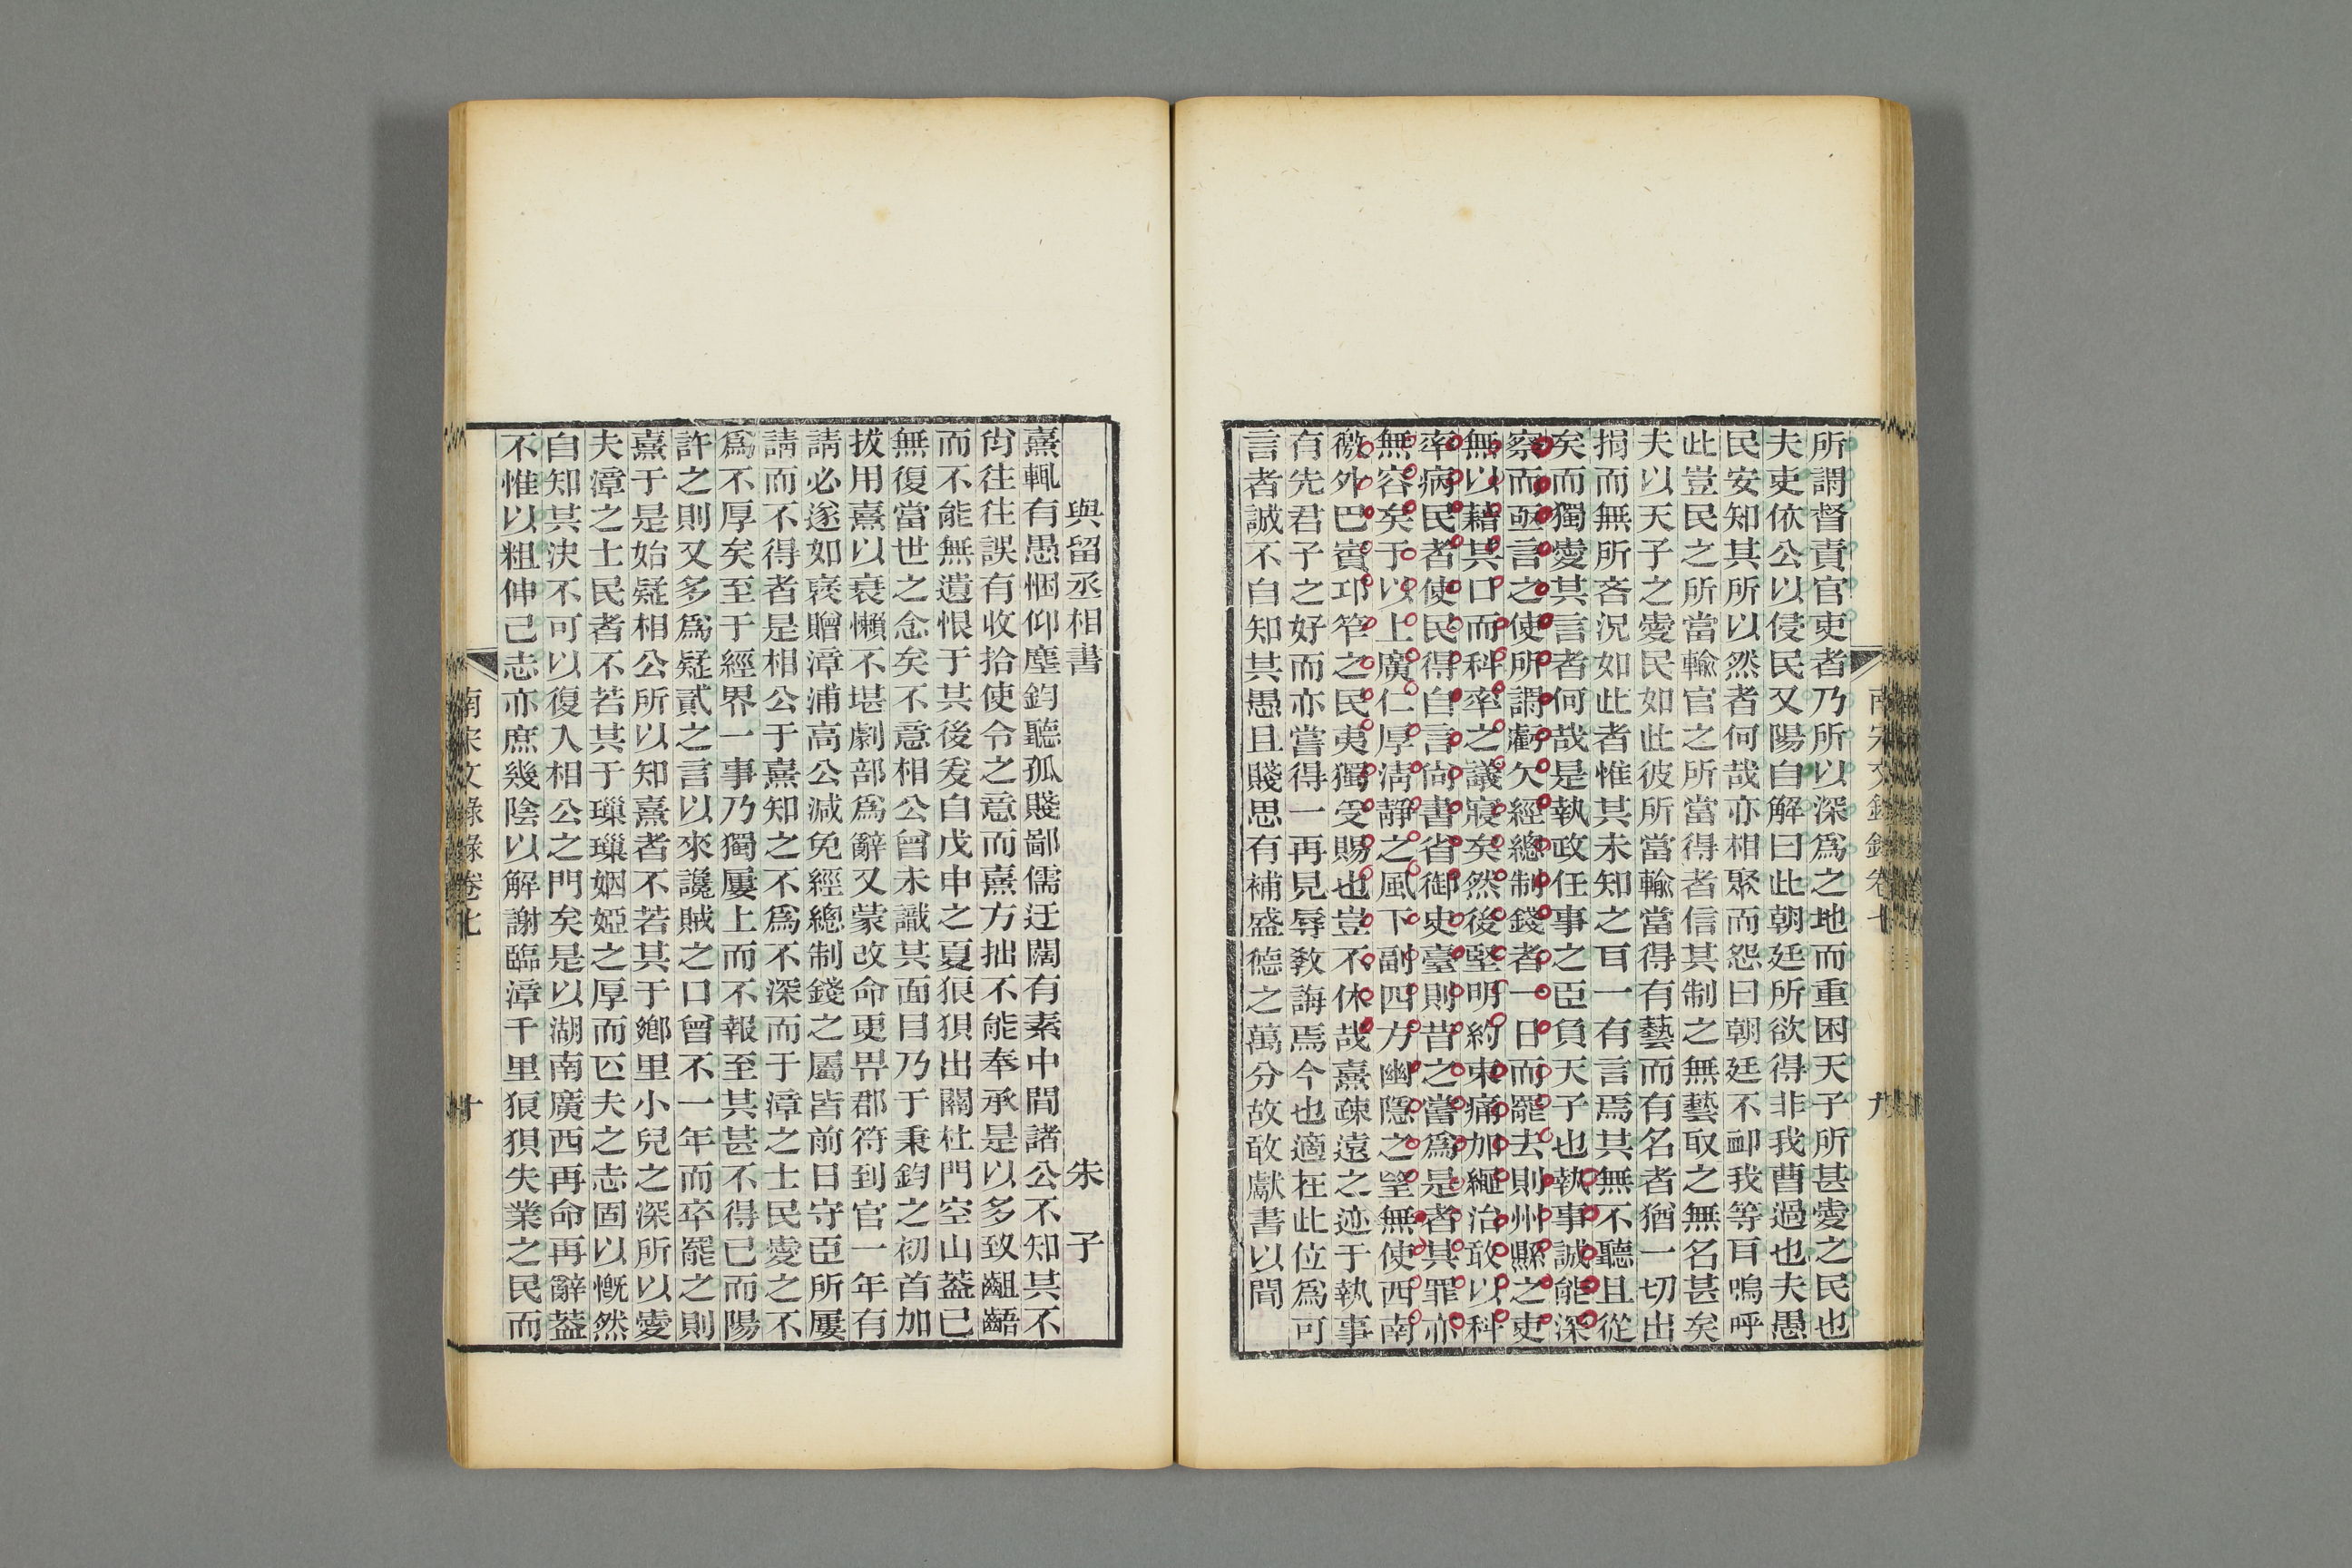 所謂督責官吏者乃所以深爲之地而重困天子所甚愛之民也
夫吏依公以侵民又陽自解曰此朝廷所欲得非我曹過也夫愚
民安知其所以然者何哉亦相聚而怨曰朝廷不卹我等耳嗚呼
此豈民之所當輸官之所當得者信其制之無藝取之無名甚矣
夫以天子之愛民如此彼所當輸當得有藝而有名者猶一切出
捐而無所吝況如此者惟其未知之耳一有言焉其無不聽且從
矣而獨愛其言者何哉是執政任事之臣負天子也執事誠能深
察而亟言之使所謂虧欠經總制錢者一日而罷去則州縣之吏
無以藉其口而科率之議寢矣然後堅明約束痛加繩治敢以科
率病民者使民得自言尙書省御史臺則昔之嘗爲是者其罪亦
無容矣于以上廣仁厚淸靜之風下副四方幽隱之望無使西南
徼外巴賨邛筰之民夷獨受賜也豈不休哉熹疎遠之迹于執事
有先君子之好而亦嘗得一再見辱敎誨焉今也適在此位爲可
言者誠不自知其愚且賤思有補盛德之萬分故敢獻書以聞
南宋文錄錄卷七
九
與留丞相書 朱子
熹輒有愚悃仰塵鈞聽孤賤鄙儒迂闊有素中間諸公不知其不
肖往往誤有收拾使令之意而熹方拙不能奉承是以多致齟齬
而不能無遺恨于其後爰自戊申之夏狼狽出關杜門空山葢已
無復當世之念矣不意相公曾未識其面目乃于秉鈞之初首加
拔用熹以衰懶不堪劇部爲辭又蒙改命更畀郡符到官一年有
請必遂如裦贈漳浦高公減免經總制錢之屬皆前日守臣所屢
請而不得者是相公于熹知之不爲不深而于漳之士民愛之不
爲不厚矣至于經界一事乃獨屢上而不報至其甚不得已而陽
許之則又多爲疑貳之言以來讒賊之口曾不一年而卒罷之則
熹于是始疑相公所以知熹者不若其于鄕里小兒之深所以愛
夫漳之士民者不若其于璅璅姻婭之厚而匹夫之志固以慨然
自知其決不可以復入相公之門矣是以湖南廣西再命再辭葢
不惟以粗伸己志亦庶幾陰以解謝臨漳千里狼狽失業之民而
南宋文錄錄卷七
十